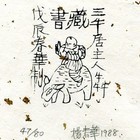 三千居主人
藏書
戊辰春華制
47/80
杨春華 1988.